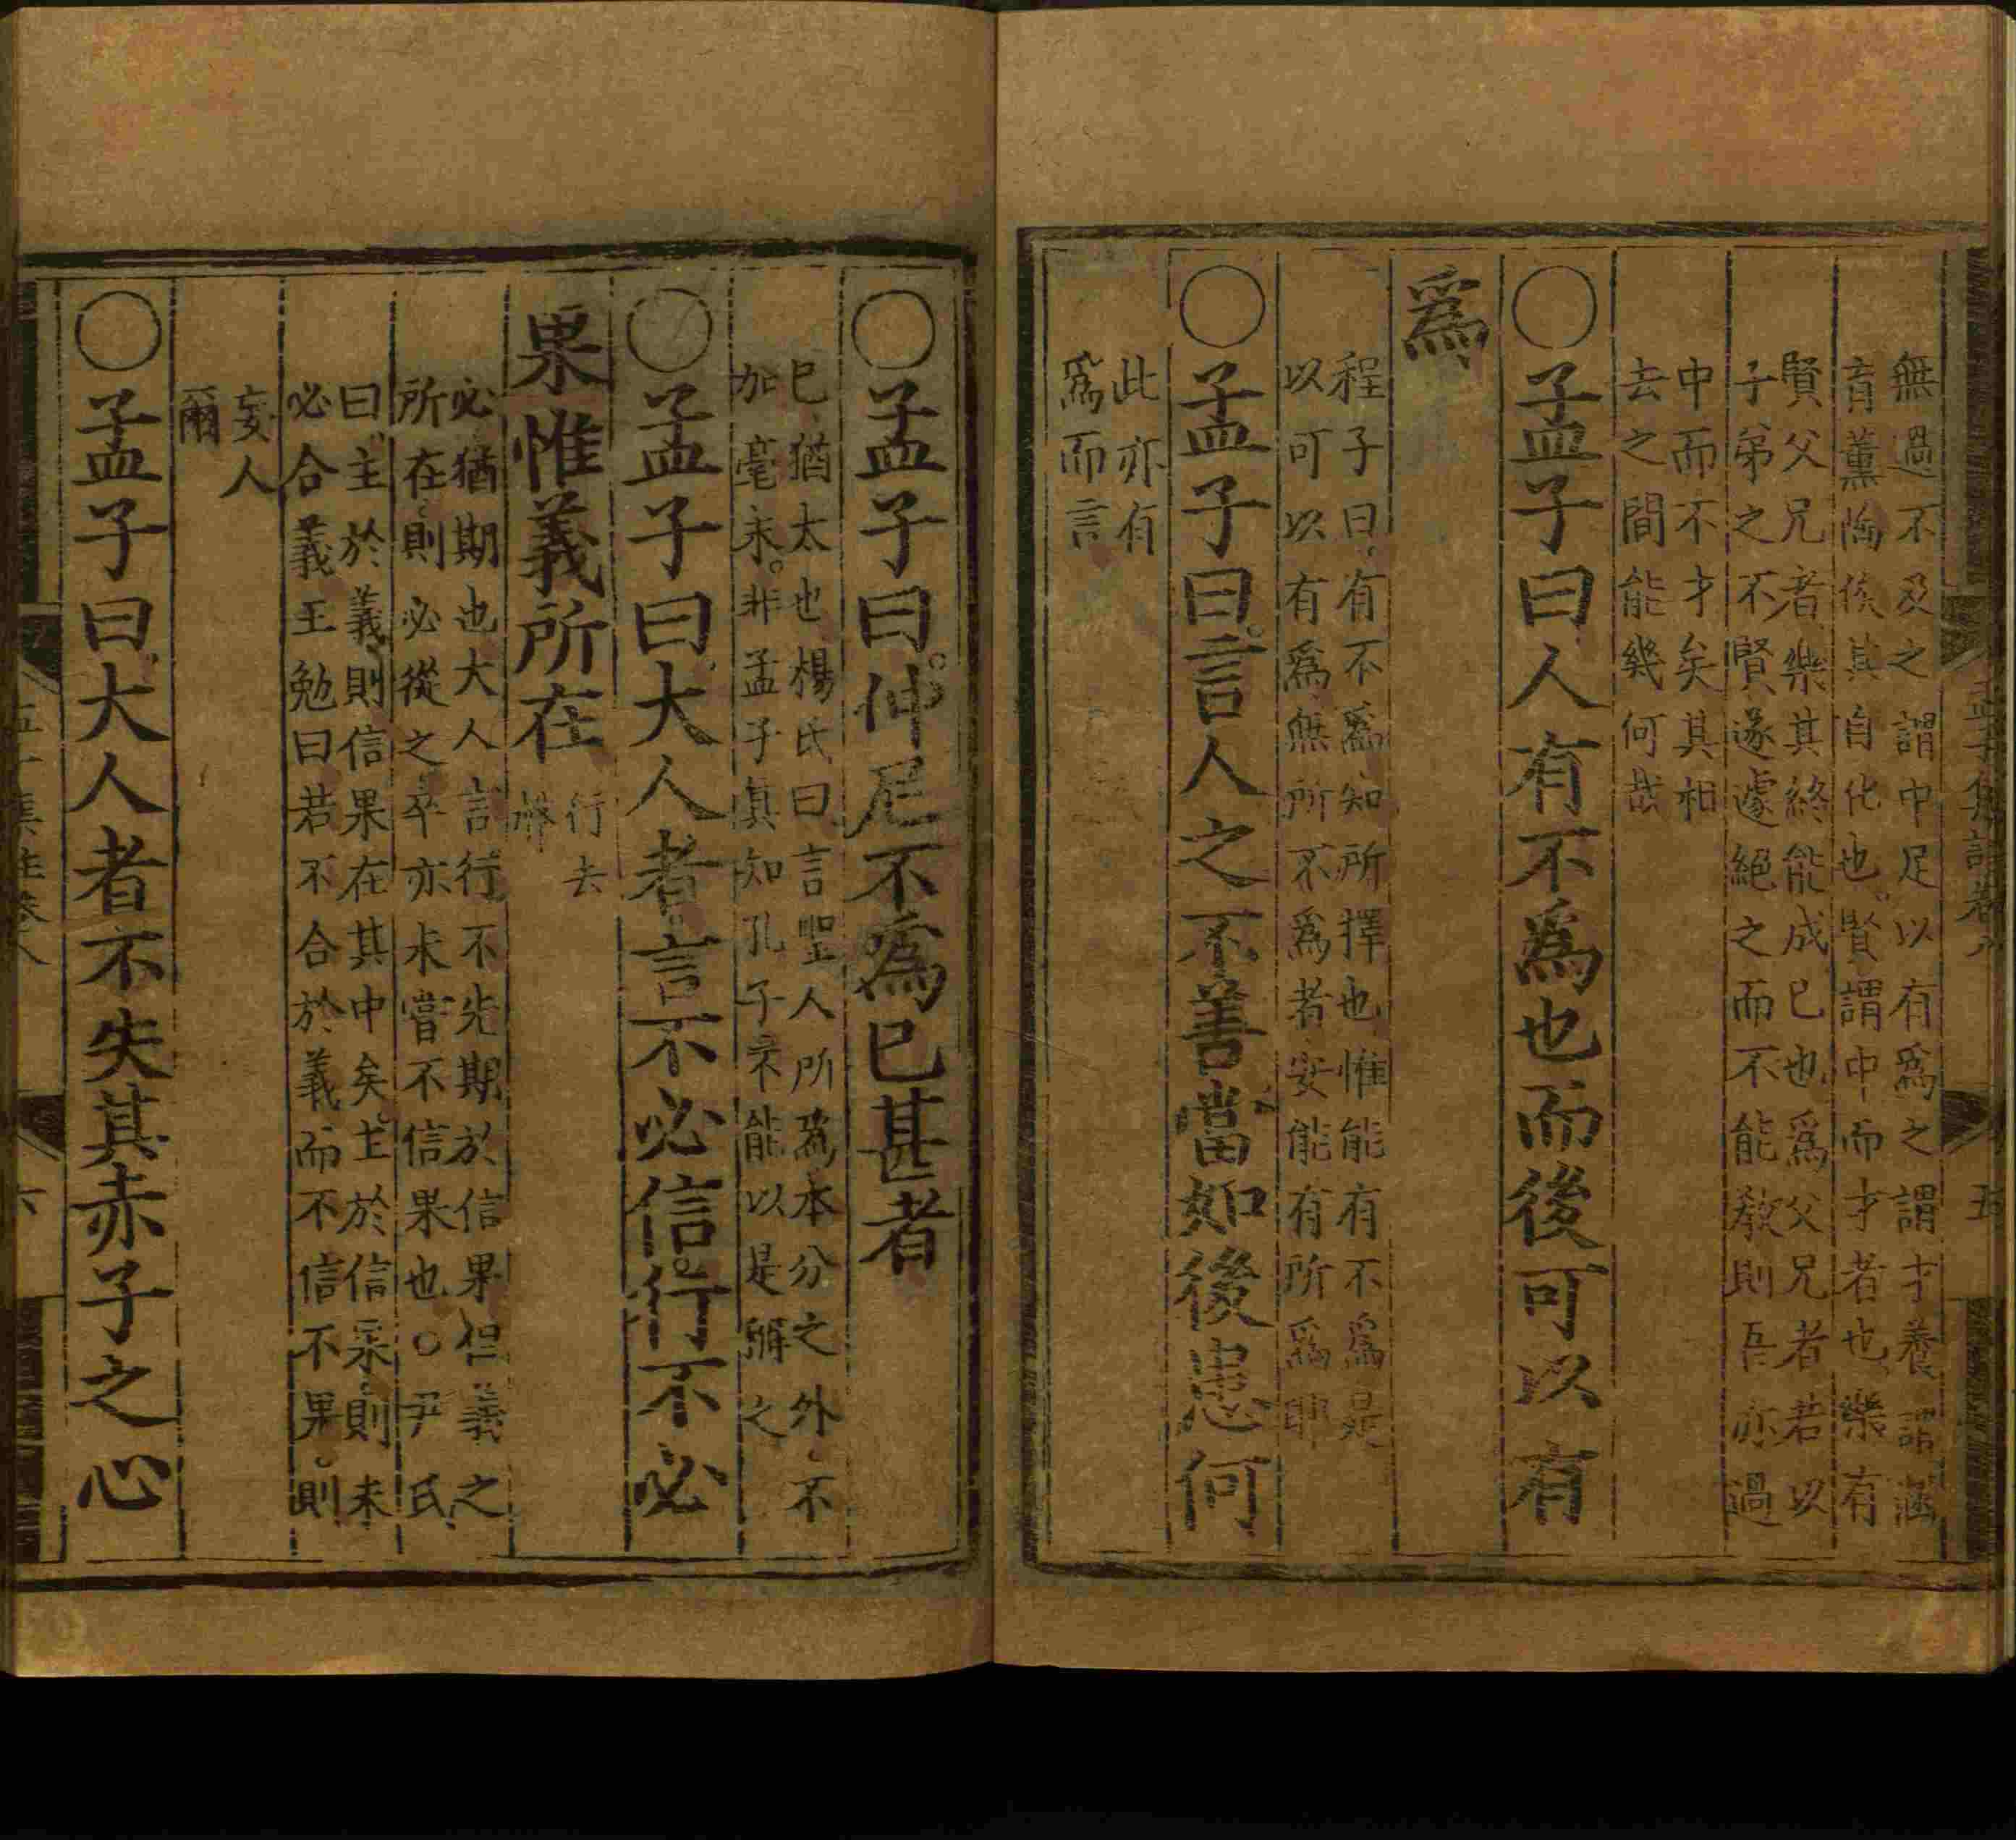 無過不及之謂中足以有爲之謂才養謂涵
育薰陶俟其自化也賢謂中而才者也樂有
賢父兄者樂其終能成已也爲父兄者若以
子弟之不賢遂遽絕之而不能教則吾亦過
中而不才矣其相
去之間能幾何哉
○孟子曰人有不爲也而後可以有
爲
程子曰有不爲知所擇也惟能有不爲是
以可以有爲無所不爲者安能有所爲耶
○孟子曰言人之不善當如後患何
此亦有
爲而言
○孟子曰仲尼不爲已甚者
已猶太也楊氏曰言聖人所爲本分之外不
加毫末非孟子眞知孔子不能以是稱之
○孟子曰大人者言不必信行不必
果惟義所在
行去
聲
必猶期也大人言行不先期於信果但義之
所在則必從之卒亦未嘗不信果也○尹氏
曰主於義則信果在其中矣主於信果則未
必合義王勉曰若不合於義而不信不果則
妄人
爾
○孟子曰大人者不失其赤子之心